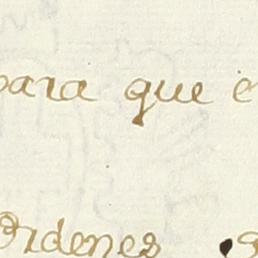 para que
Ordenes